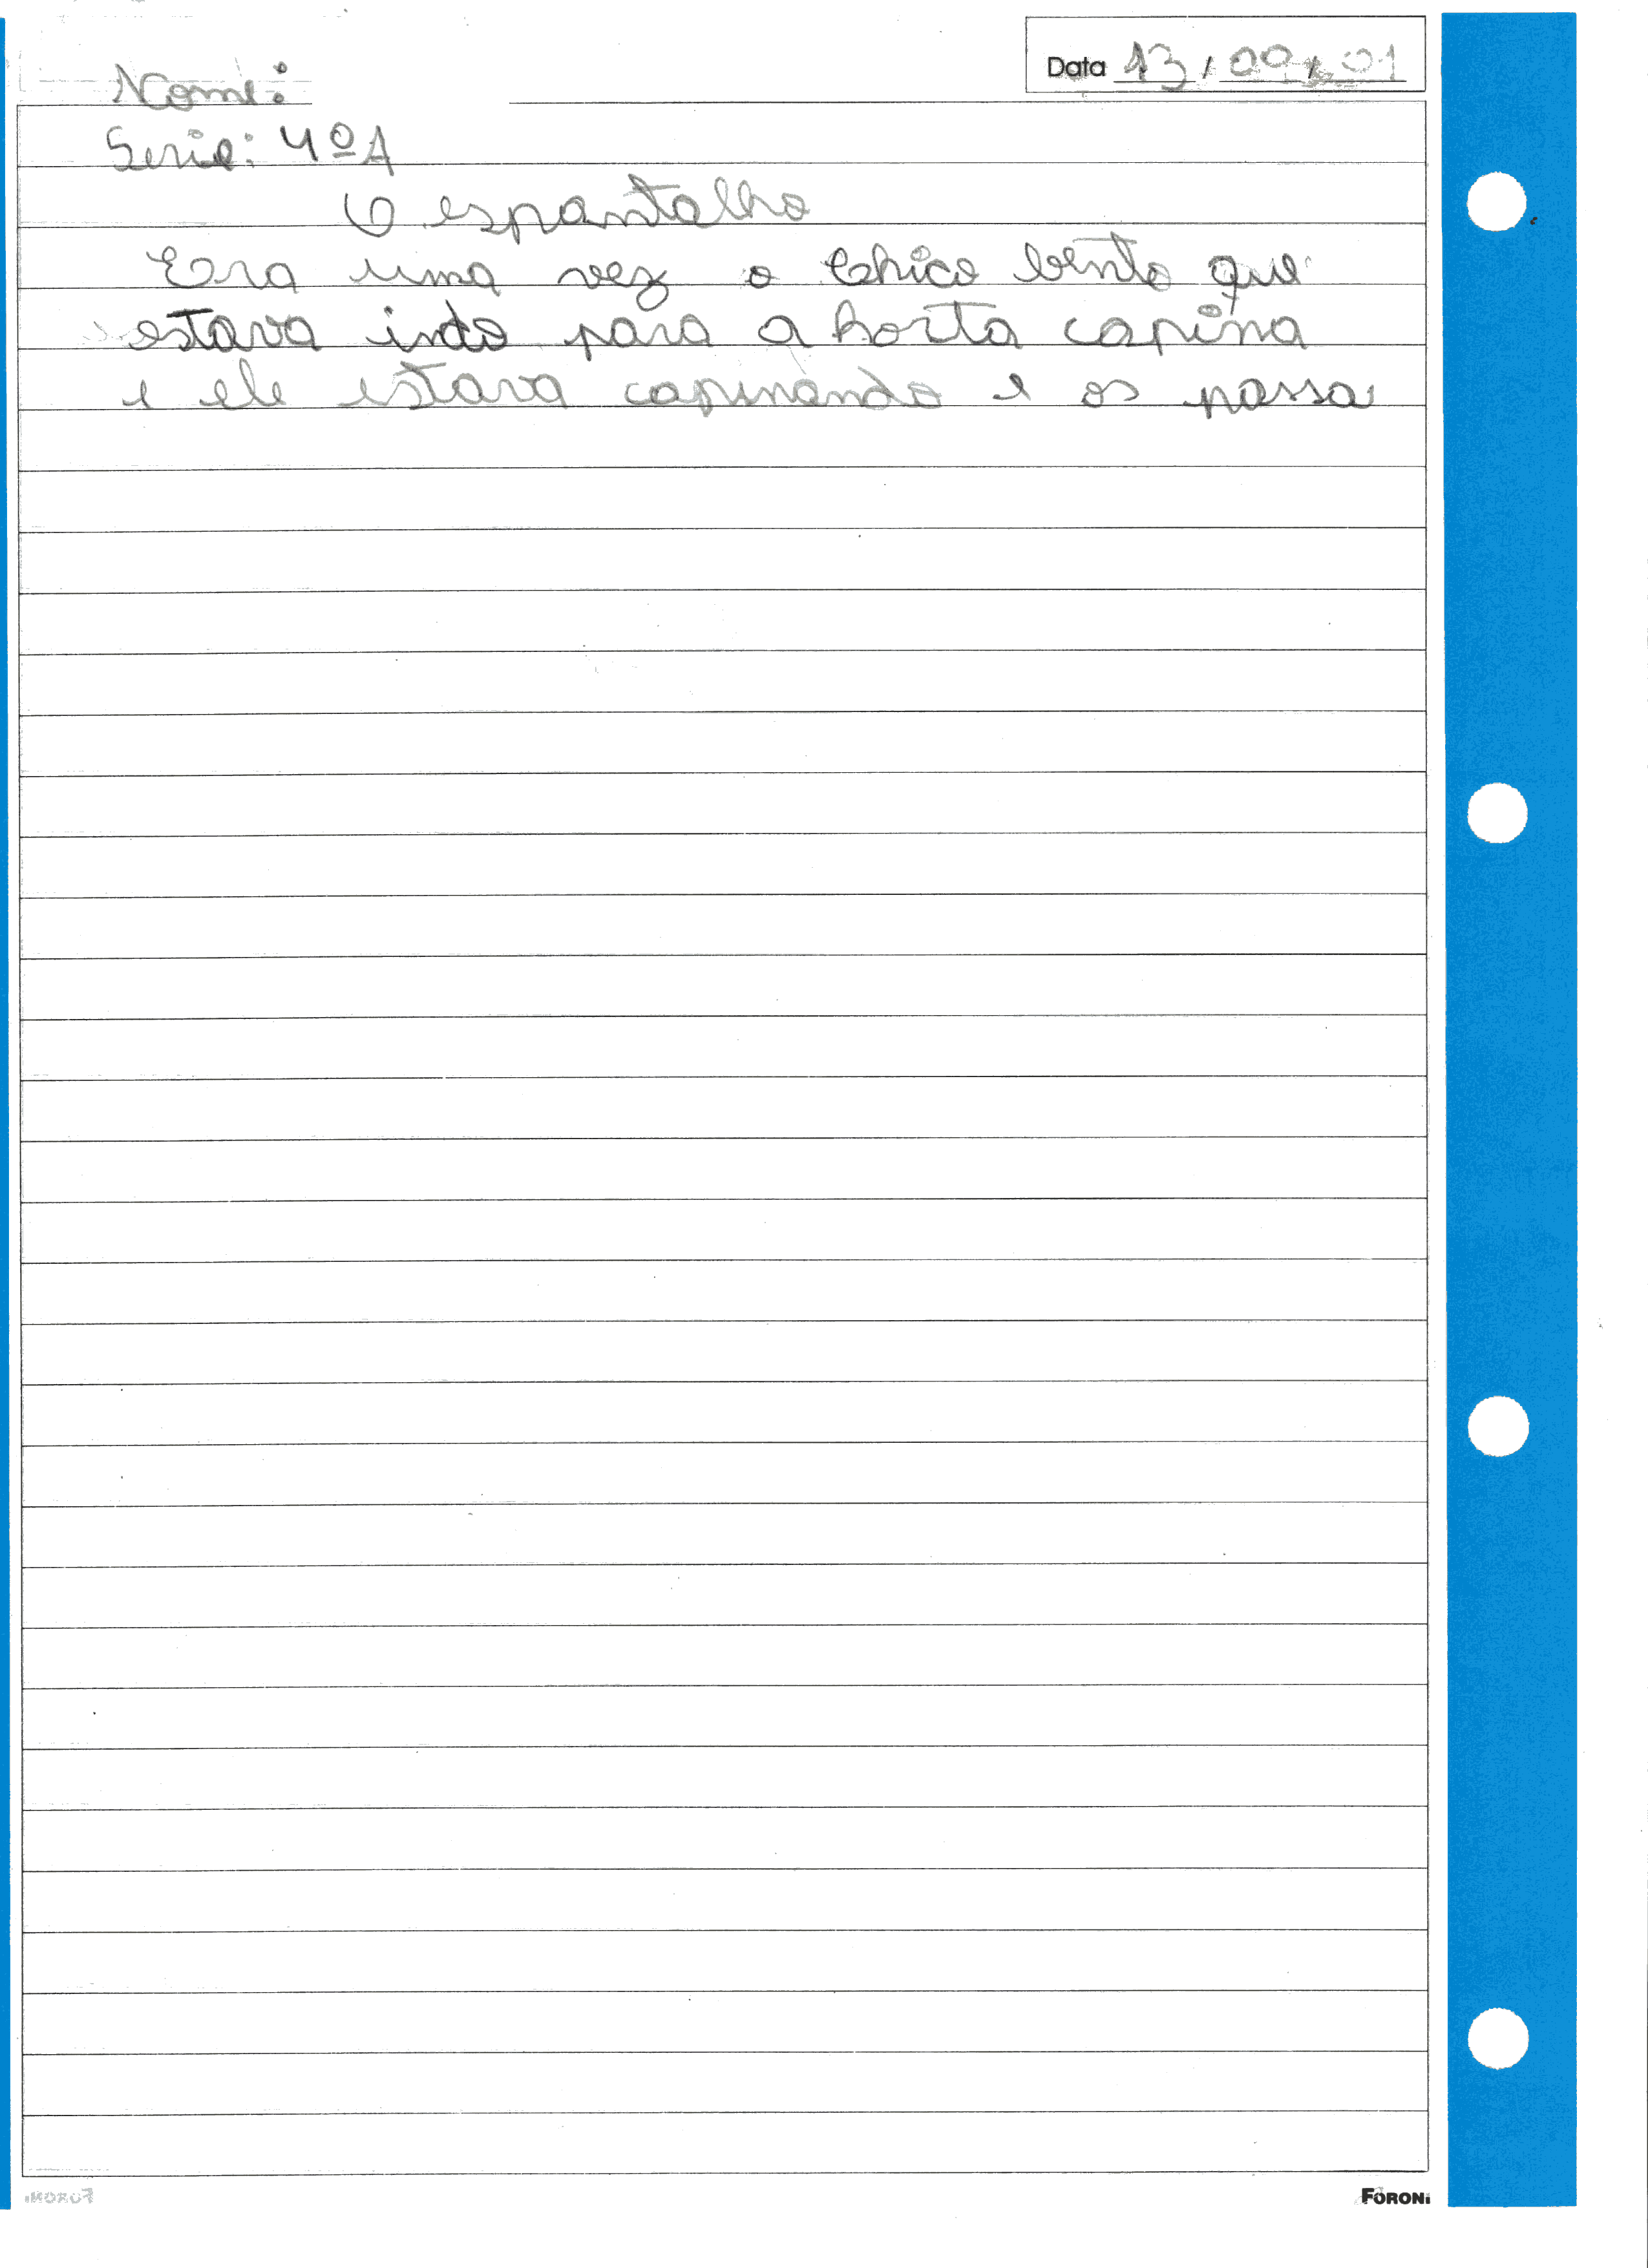 Data 13/09/01
Nome:
Serie: 4ºA
O espantalho
Era uma vez o Chico bento que
estava indo para a horta capina
e ele estava capinando e os passa
FORONI